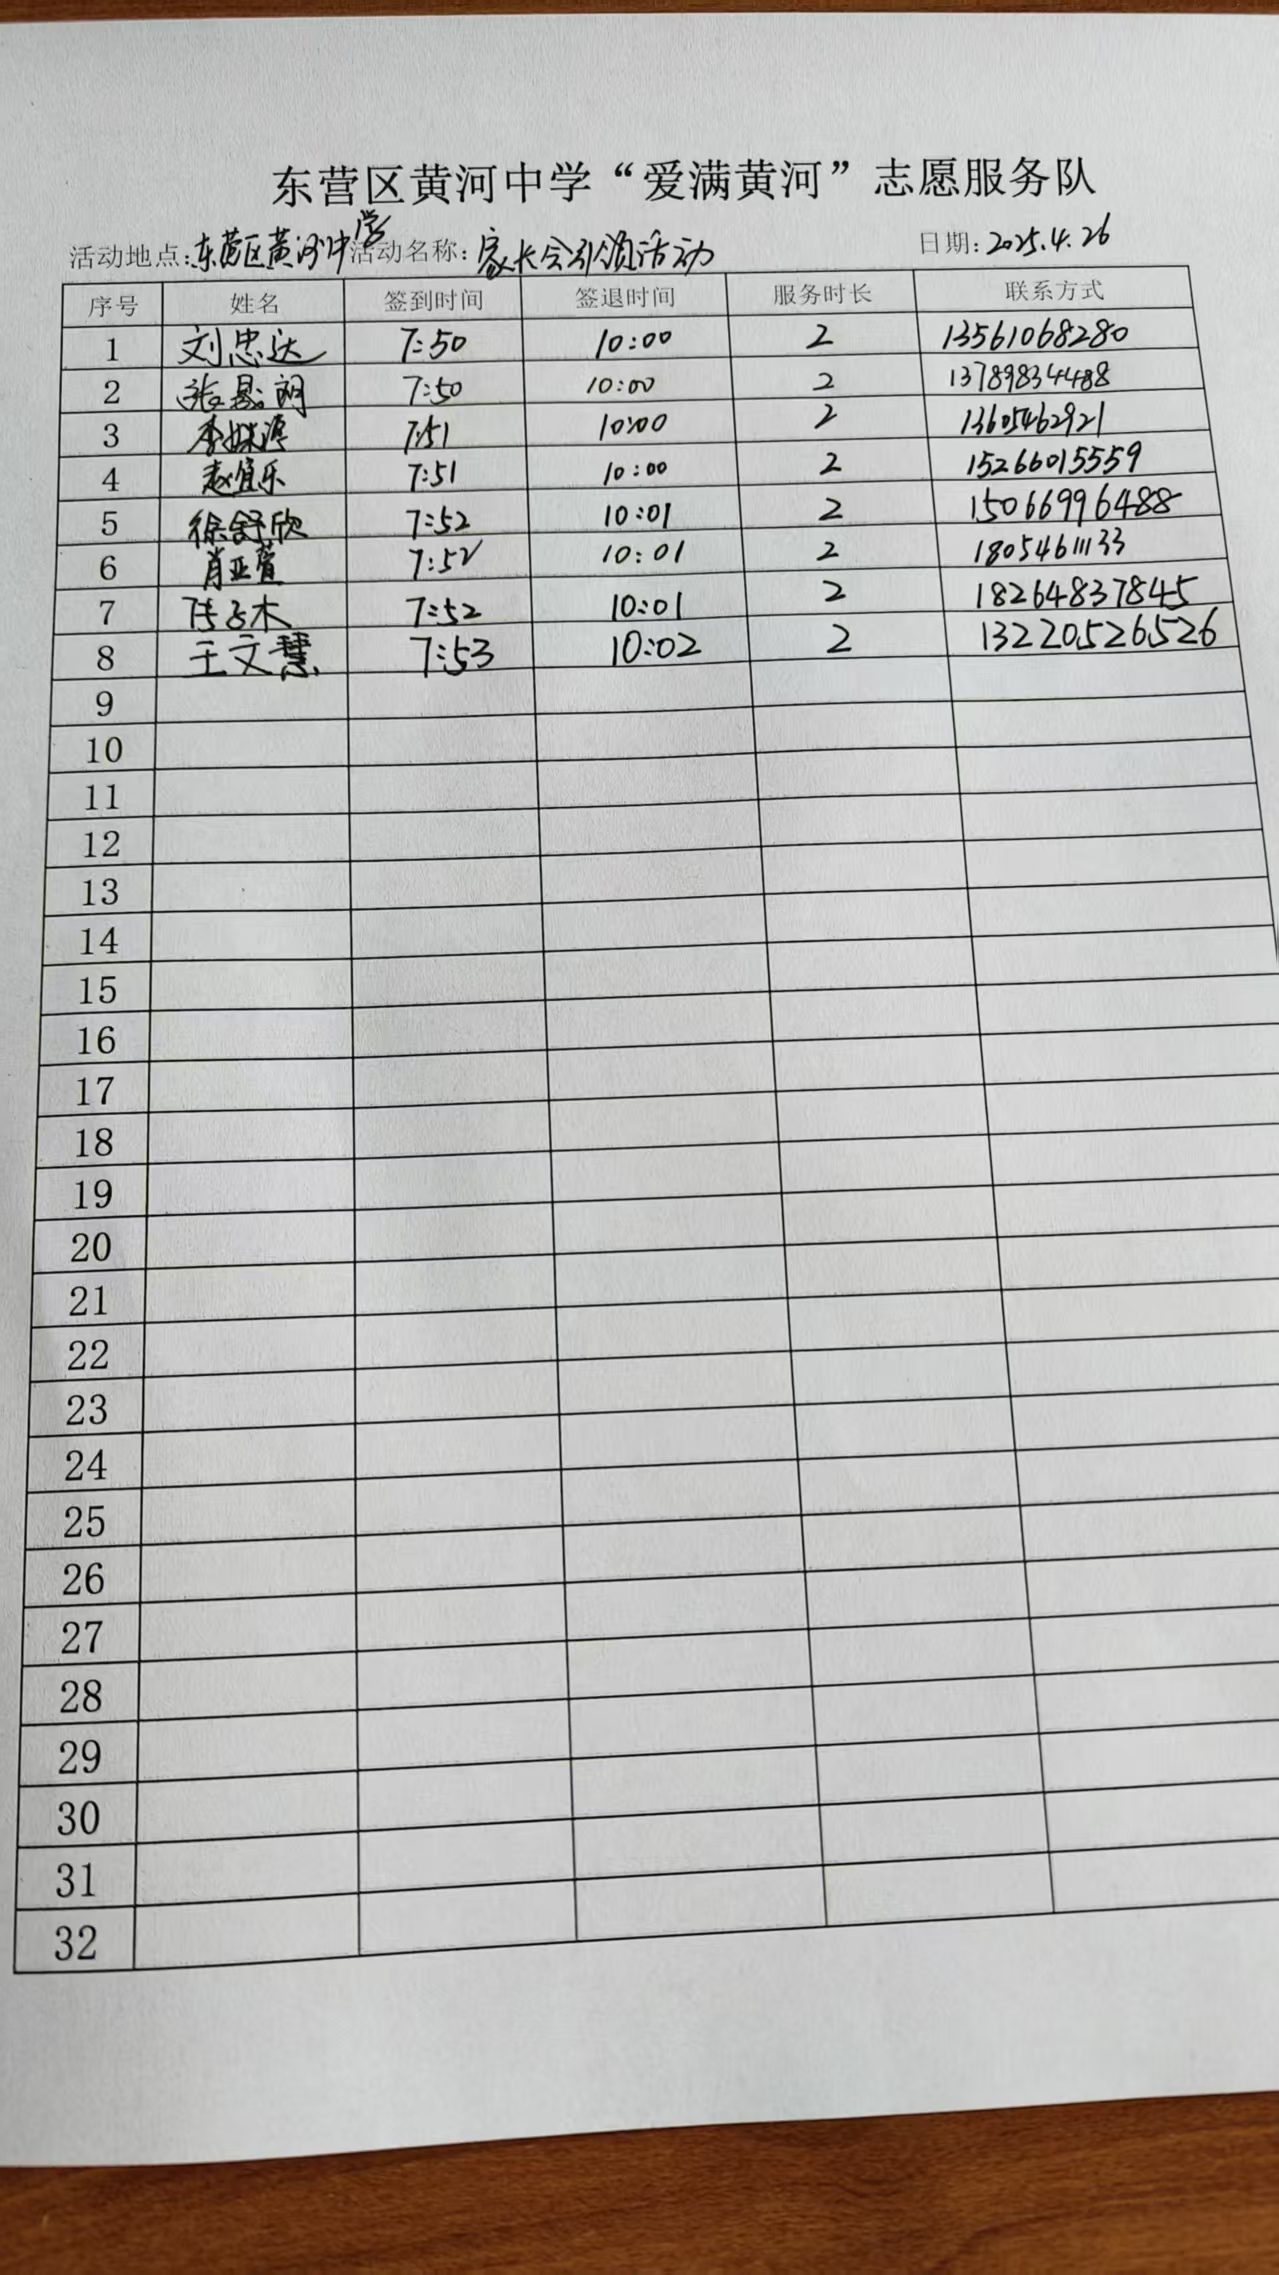 东营区黄河中学“爱满黄河”志愿服务队
活动地点:东营区黄河中学 活动名称:家长会引领活动 日期:2025.4.26
序号 姓名 签到时间 签退时间 服务时长 联系方式
1 刘忠达 7:50 10:00 2 13561068280
2 张晟朗 7:50 10:00 2 13789834488
3 7:51 10:00 2 13605462921
4 赵宜乐 7:51 10:00 2 15266015559
5 徐舒欣 7:52 10:01 2 15066996488
6 肖亚萱 7:52 10:01 2 18054611133
7 7:52 10:01 2 18264837845
8 王文慧 7:53 10:02 2 13220526526
9
10
11
12
13
14
15
16
17
18
19
20
21
22
23
24
25
26
27
28
29
30
31
32